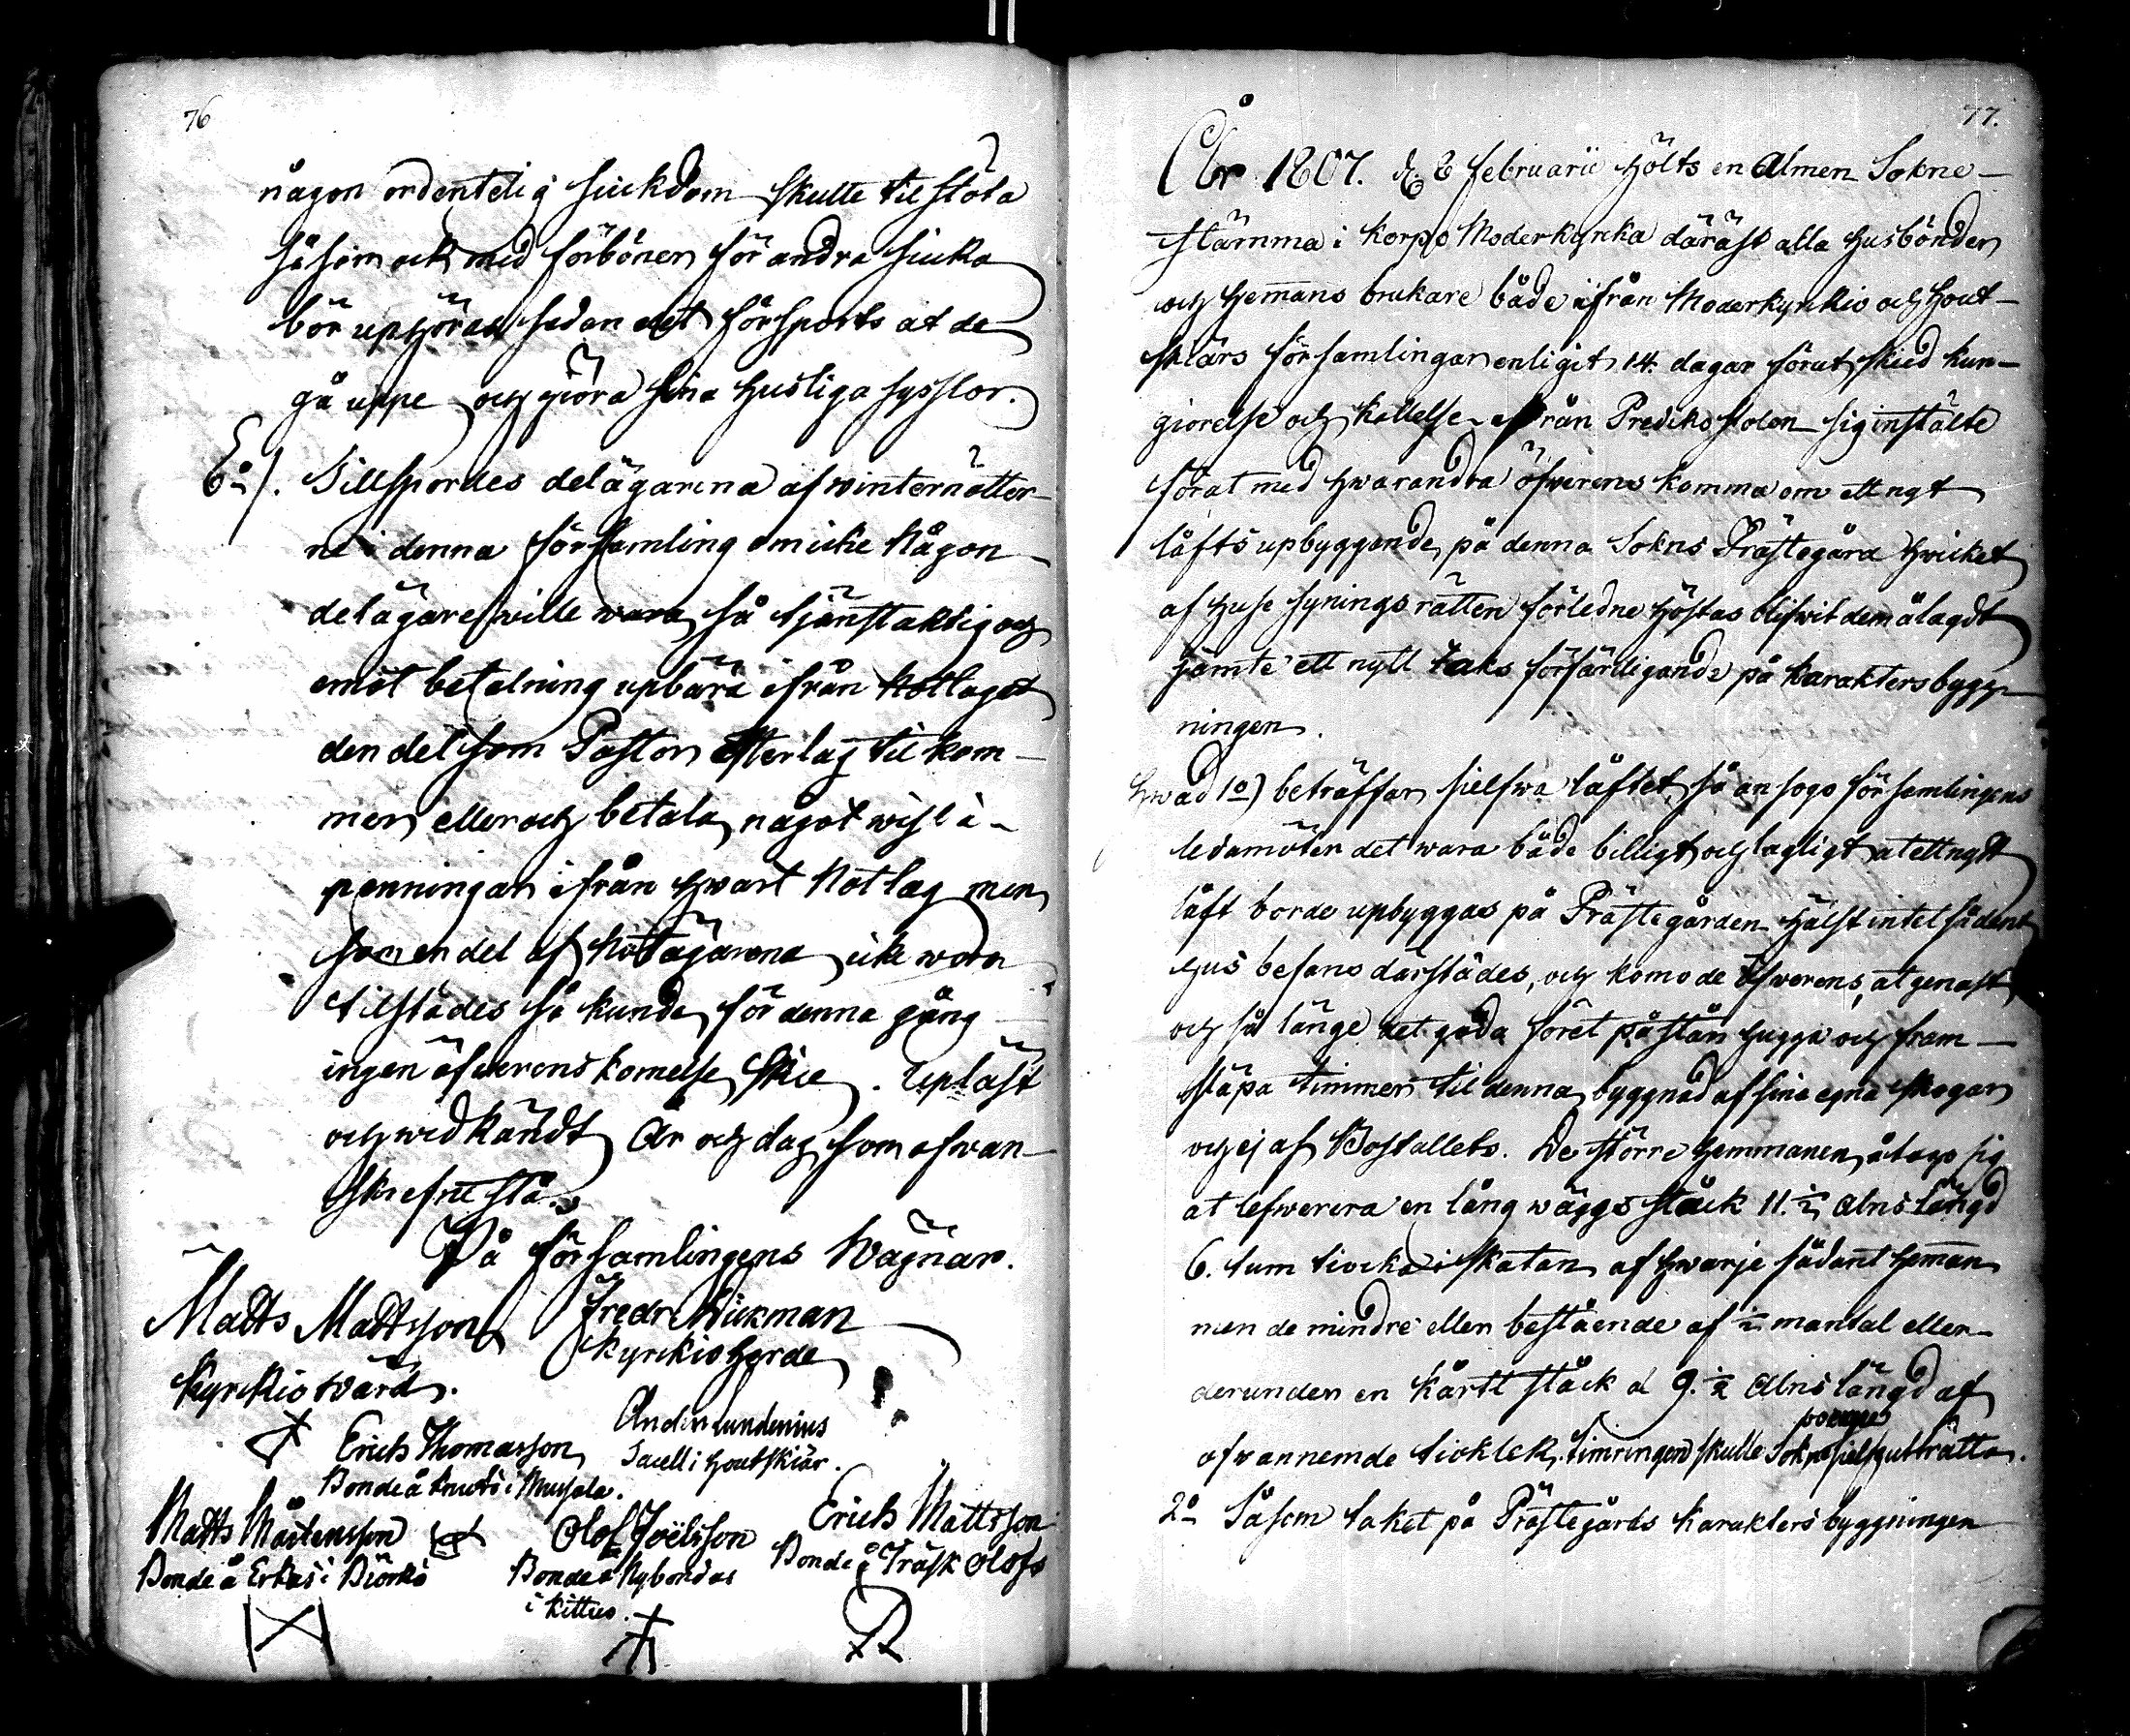 76
någon ordentelig siukdom skulle til stöta
såsom ock med förbönen för andra siuka
bör uphöras sedan det försports at de
gå uppe och giöra sina husliga sysslor.
6o/. Tillspordes delägarena af winternötter-
ne i denna församling om icke någon
delägare wille wara så tjänstaktig och
emot betalning upbära ifrån Notlaget
den del som Pastor Esterlag til kom-
mer eller och betala något wist i
penningar ifrån hwart Notlag men
som en del af Notägarena icke woro
tilstädes så kunde för denna gång
ingen öfwerenskomelse skie. Upläst
och widkändt År och dag som ofwan-
skrefne stå.
På församlingens Wägnar.
Matts Mattsson Fredr Wickman
Kyrkiowärd. Kyrkioherde
Erich Thomasson Anders Lundenius
Bonde å Knuts i Mussala. Sacell: i Houtskiär.
Matts Mårtensson Olof Joëlsson Erich Mattsson
Bonde å Erkas i Biörkö Bonde å Nybondas Bonde å Träsk Olofs
i Kittuis.
77.
År 1807. d. 8 februarii hölts en Almen Sokne-
stämma i Korpo Moderkyrka däräst alla husbönder
och hemans brukare både ifrån Moderkyrkio och Hout-
skiärs församlingar enligit 14. dagar förut skied kun-
giörelse och kallelse ifrån Predikostolen sig instälte
för at med hwarandra öfwerens komma om ett nytt
låfts upbyggende på denna Sokns Prästegård hwicket
af huse synings rätten förledne höstas blifwit dem ålagdt
jämte ett nytt taks förfärdigande på karakters bygg-
ningen.
Hwad 1o) beträffar sielfwa låftet, så ansogo församlingens
ledamöter det wara både billigt och lagligt at ett nytt
låft borde upbyggas på Prästegården hälst intet sådant
hus befans därstädes, och komo de öfwerens, at genast
och så länge det goda föret påstår hugga och fram-
släpa timmer til denna byggnad af sina egna skogar
och ej af Bostallets. De större hemmanen åtogo sig
at lefwerera en lång wäggs ståck 11. ½ alns längd
6. tum tiocka i skatan af hwarje sådant heman
men de mindre eller bestående af ½ mantal eller
derunder en kårtt ståck a 9. ½ Alns längd af
ofwannemde tioklek. timringen skulle Sokne sielf utträtta.
2o Såsom taket på Prästegårds karakters byggningen